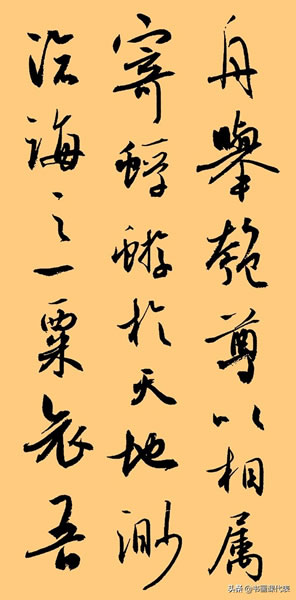 舟举匏尊以相属
寄蜉蝣於天地渺
沧海之一粟哀吾
头条@书画课代表